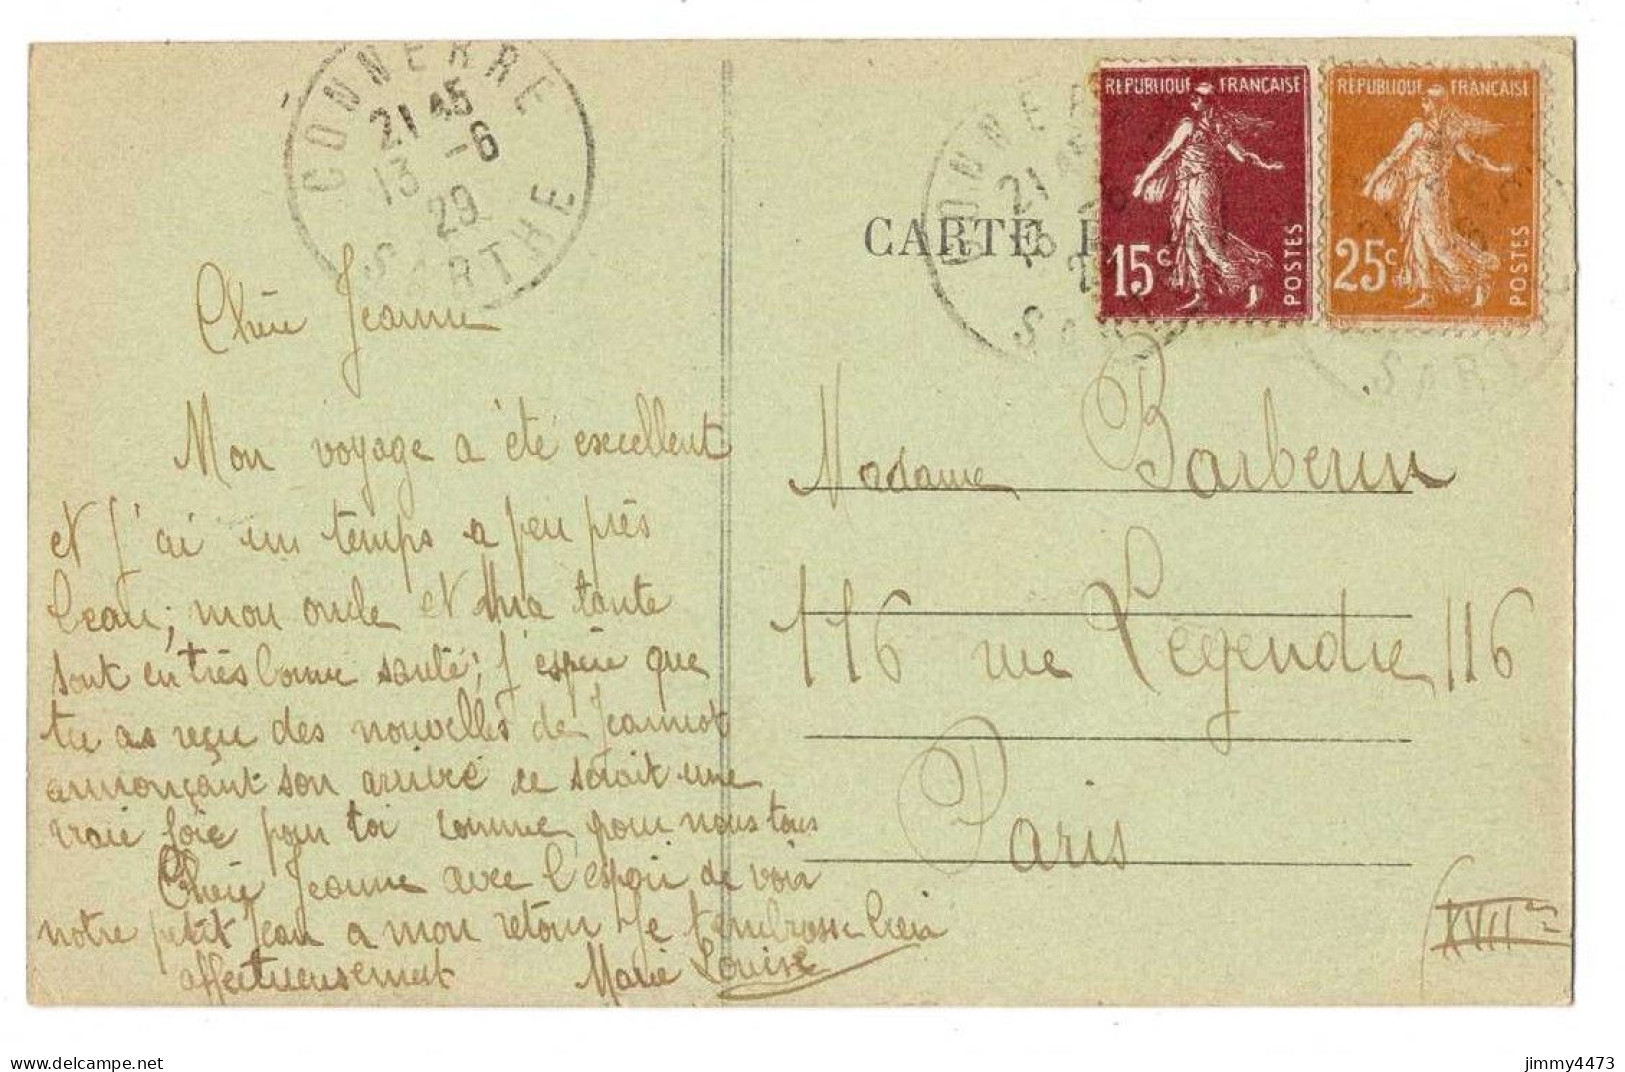 CONNERRE
21 45
13 -6
29
SARTHE
CARTE P
REPUBLIQUE FRANÇAISE
15c
POSTES
REPUBLIQUE FRANÇAISE
25c
POSTES
CONNER
21 45
SAR
SART
Chère Jeanne
Mon voyage a été excellent
et j'ai un temps a peu près
beau; mon oncle et ma tante
sont en très bonne santé; j'espère que
tu as reçu des nouvelles de Jeannot
annonçant son arrivé ce serait une
vraie joie pour toi comme pour nous tous
Chère Jeanne avec l'espoir de voir
notre petit Jean a mon retour je t'embrasse bien
affectueusement Marie Louise
Madame Barberin
116 rue Legendre 116
Paris
XVIIe
www.delcampe.net
jimmy4473